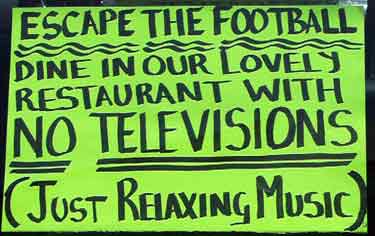 ESCAPE THE FOOTBALL
DINE IN OUR LOVELY
RESTAURANT WITH
NO TELEVISIONS
(JUST RELAXING MUSIC)